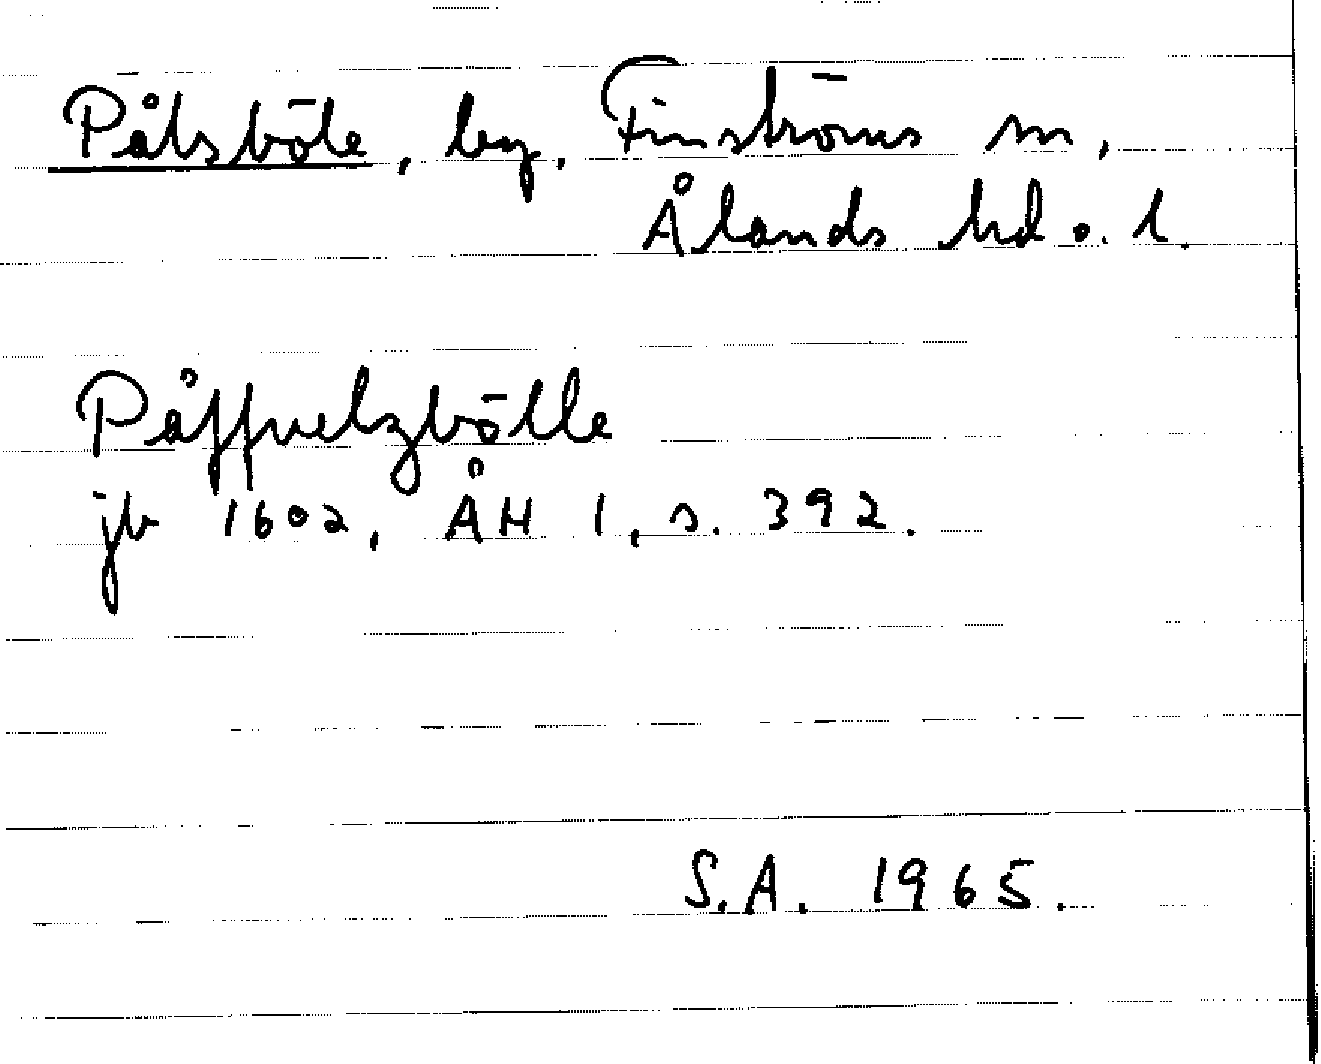 Pålsböle, by, Finströms sn,
Ålands hd o. l.
Påffuelzbölle
jb 1602, ÅH 1, s. 392.
S.A. 1965.